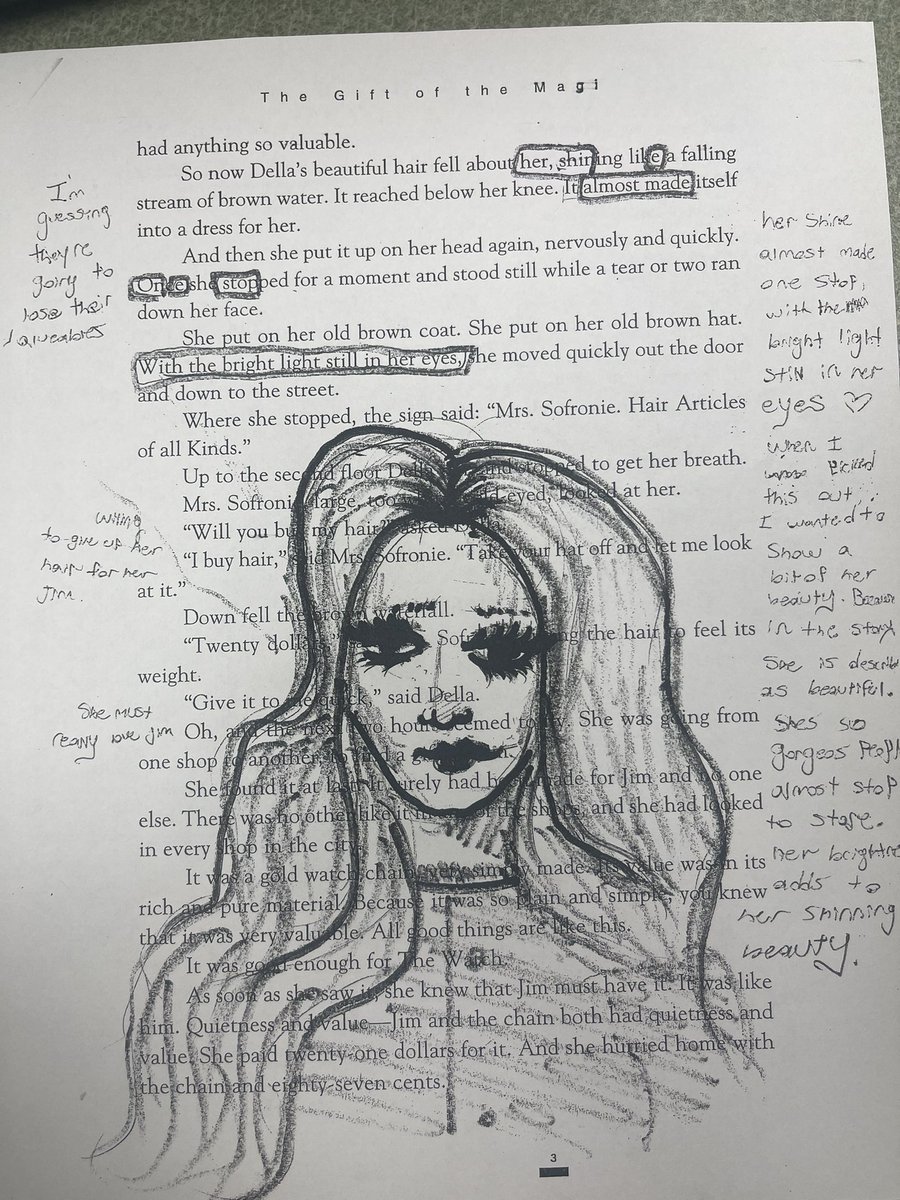 The Gift of the Magi
had anything so valuable.
So now Della's beautiful hair fell about her, shining like a falling
stream of brown water. It reached below her knee. It almost made itself
into a dress for her.
And then she put it up on her head again, nervously and quickly.
Once she stopped for a moment and stood still while a tear or two ran
down her face.
She put on her old brown coat. She put on her old brown hat.
With the bright light still in her eyes, she moved quickly out the door
and down to the street.
Where she stopped, the sign said: "Mrs. Sofronie. Hair Articles
of all Kinds."
Up to the second floor Della and stopped to get her breath.
Mrs. Sofronie, large, too eyed, looked at her.
"Will you buy my hair?" asked Della.
"I buy hair," said Mrs. Sofronie. "Take your hat off and let me look
at it."
Down fell the brown waterfall.
"Twenty dollars," the hair to feel its
weight.
"Give it to me quick," said Della.
Oh, and the next two hours seemed to fly. She was going from
one shop to another, to find a
She found it at last. It surely had been made for Jim and no one
else. There was no other like it in of the shops, and she had looked
in every shop in the city.
It was a gold watch chain, very simply made. Its value was in its
rich and pure material. Because it was so plain and simple, you knew
that it was very valuable. All good things are like this.
It was good enough for The Watch.
As soon as she saw it, she knew that Jim must have it. It was like
him. Quietness and value—Jim and the chain both had quietness and
value. She paid twenty-one dollars for it. And she hurried home with
the chain and eighty-seven cents.
3
I'm
guessing
they're
going to
lose their
willing
to give up her
hair for her
Jim.
She must
really love Jim
her shine
almost made
one stop,
with the
bright light
still in her
eyes ♡
when I
picked
this out,
I wanted to
show a
bit of her
beauty. Because
in the story
she is describ
as beautiful.
Shes so
gorgeos peopl
almost stop
to stare.
her brightne
adds to
her shinning
beauty.